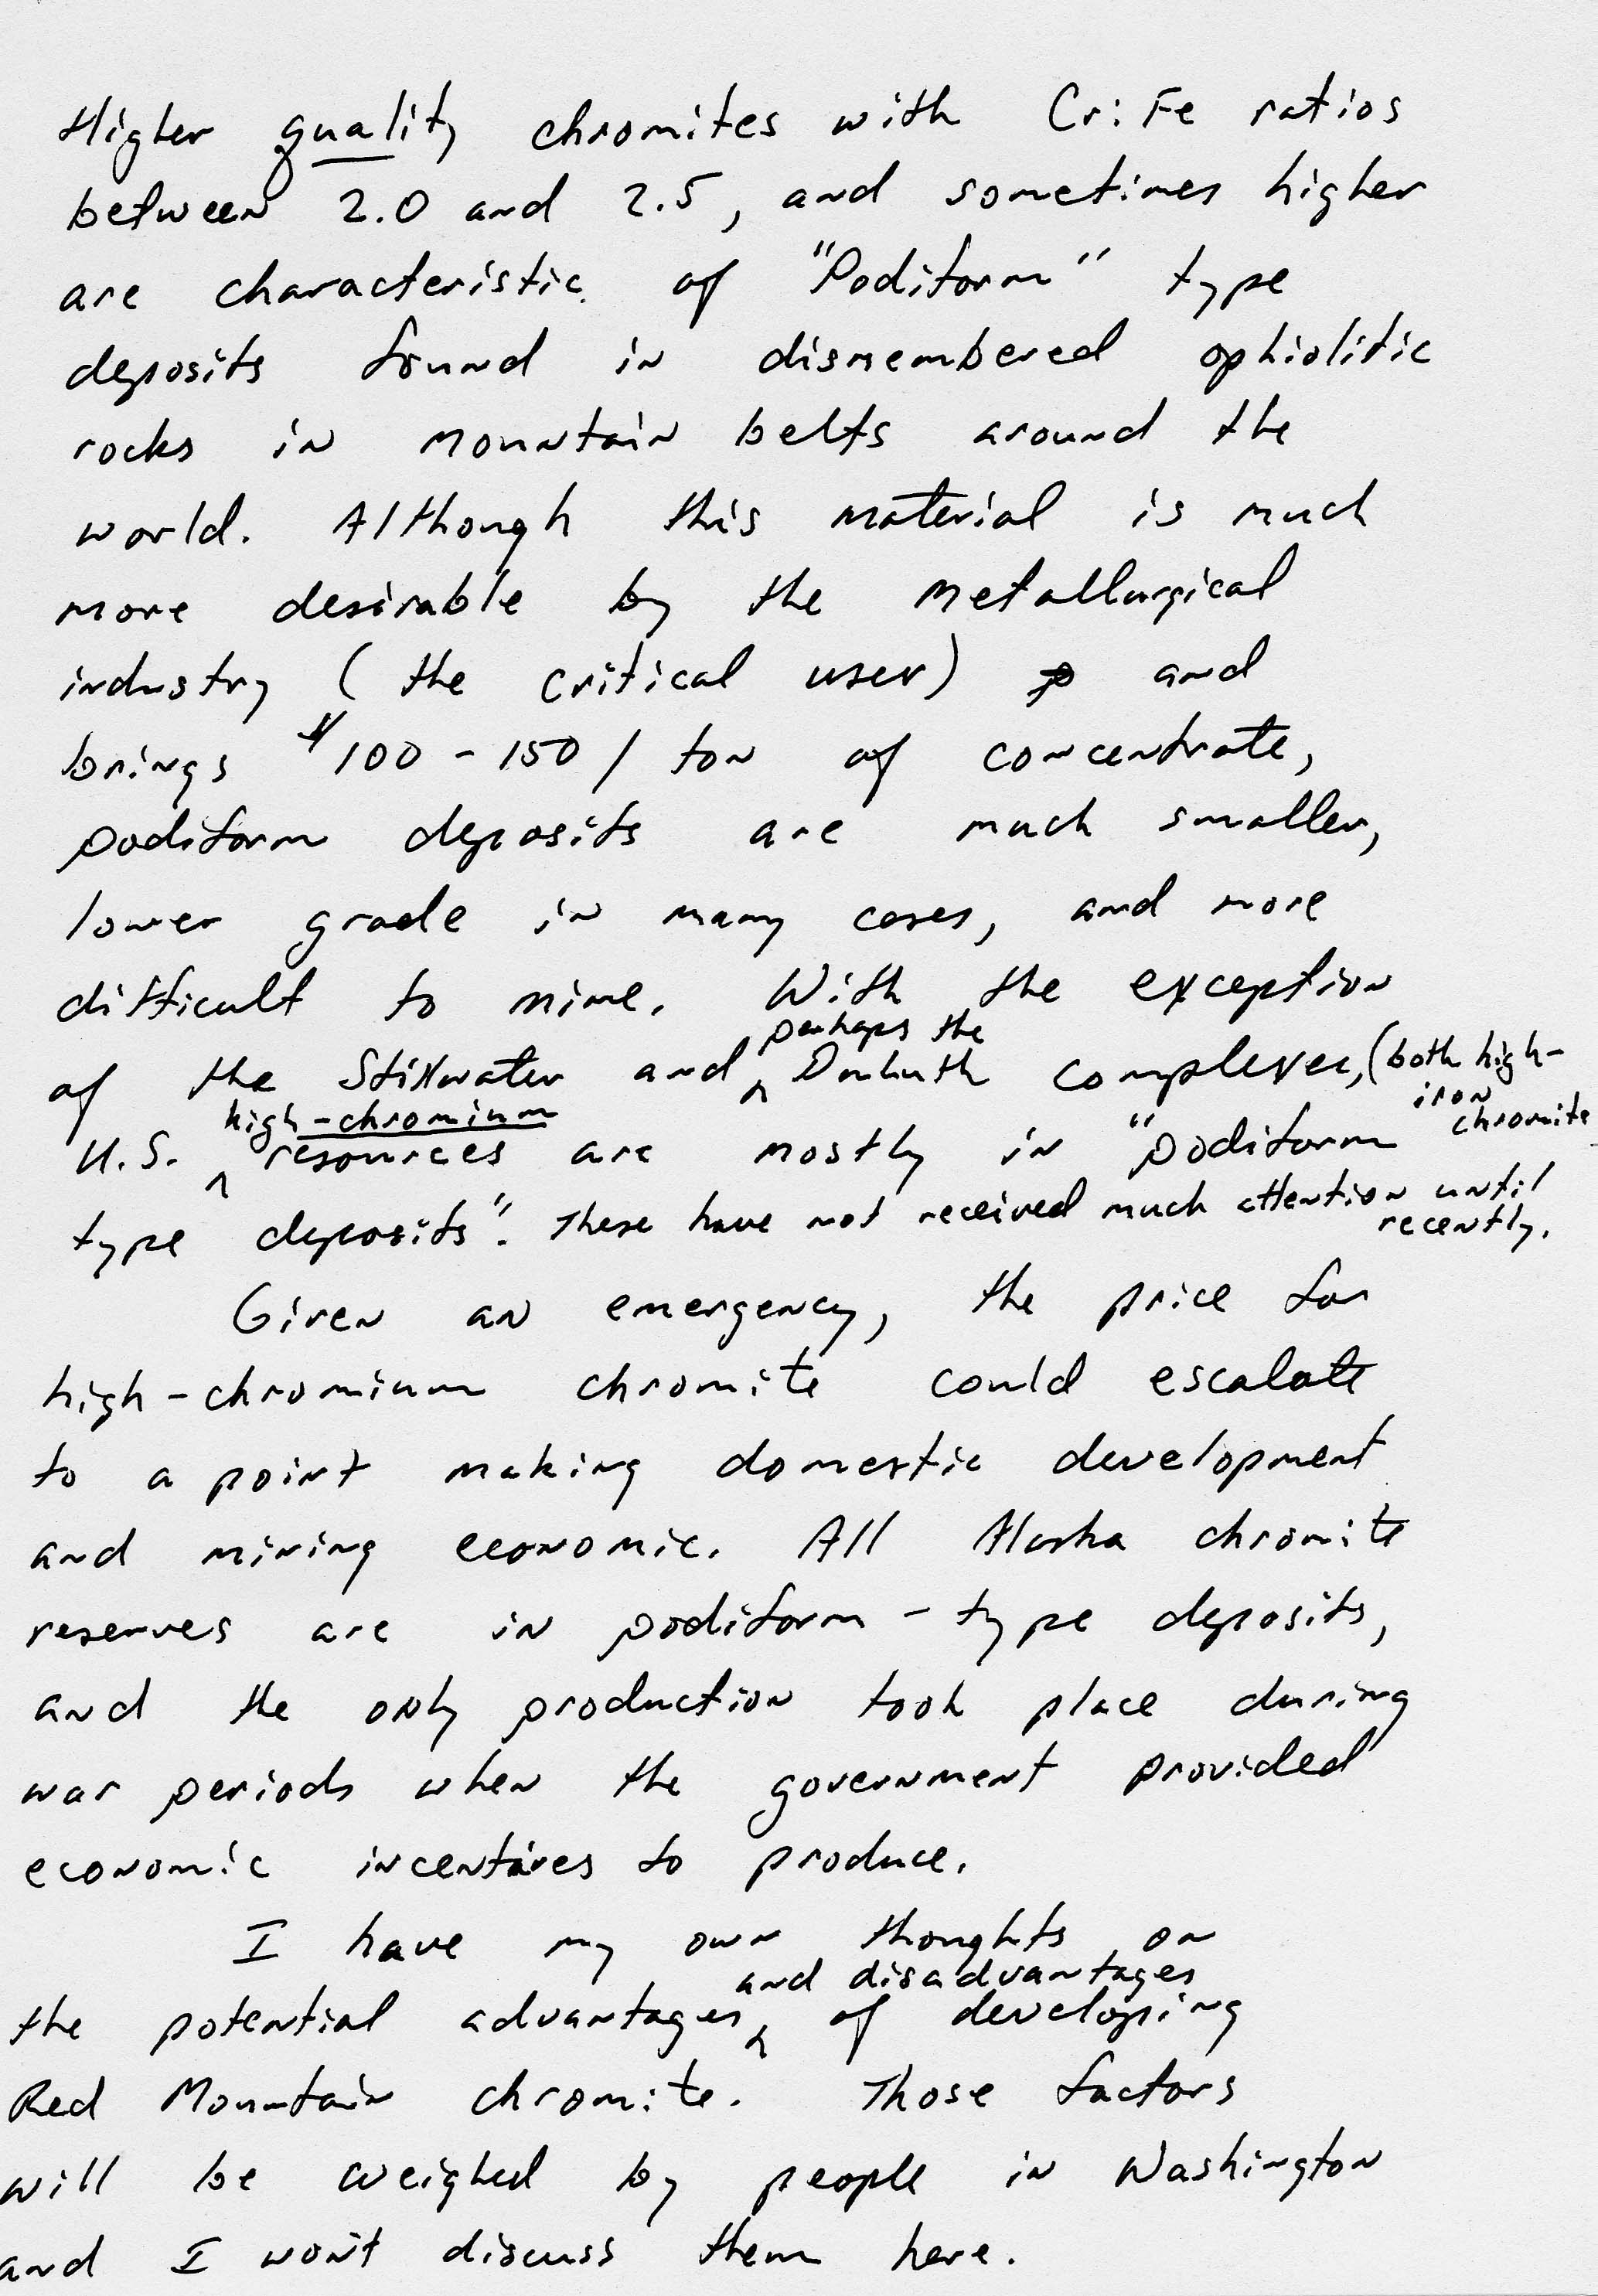 Higher quality chromites with Cr:Fe ratios
between 2.0 and 2.5, and sometimes higher
are characteristic of "Podiform" type
deposits found in dismembered ophiolitic
rocks in mountain belts around the
world. Although this material is much
more desirable by the metallurgical
industry (the critical user) and
brings $100-150/ton of concentrate,
podiform deposits are much smaller,
lower grade in many cases, and more
difficult to mine. With the exception
perhaps the
of the Stillwater and Duluth complexes, (both high-
iron
chromite
high-chromium
U.S. resources are mostly in "podiform
type deposits". These have not received much attention until
recently.
Given an emergency, the price for
high-chromium chromite could escalate
to a point making domestic development
and mining economic. All Alaska chromite
reserves are in podiform-type deposits,
and the only production took place during
war periods when the government provided
economic incentives to produce.
I have my own thoughts on
and disadvantages
the potential advantages of developing
Red Mountain chromite. Those factors
will be weighed by people in Washington
and I won't discuss them here.